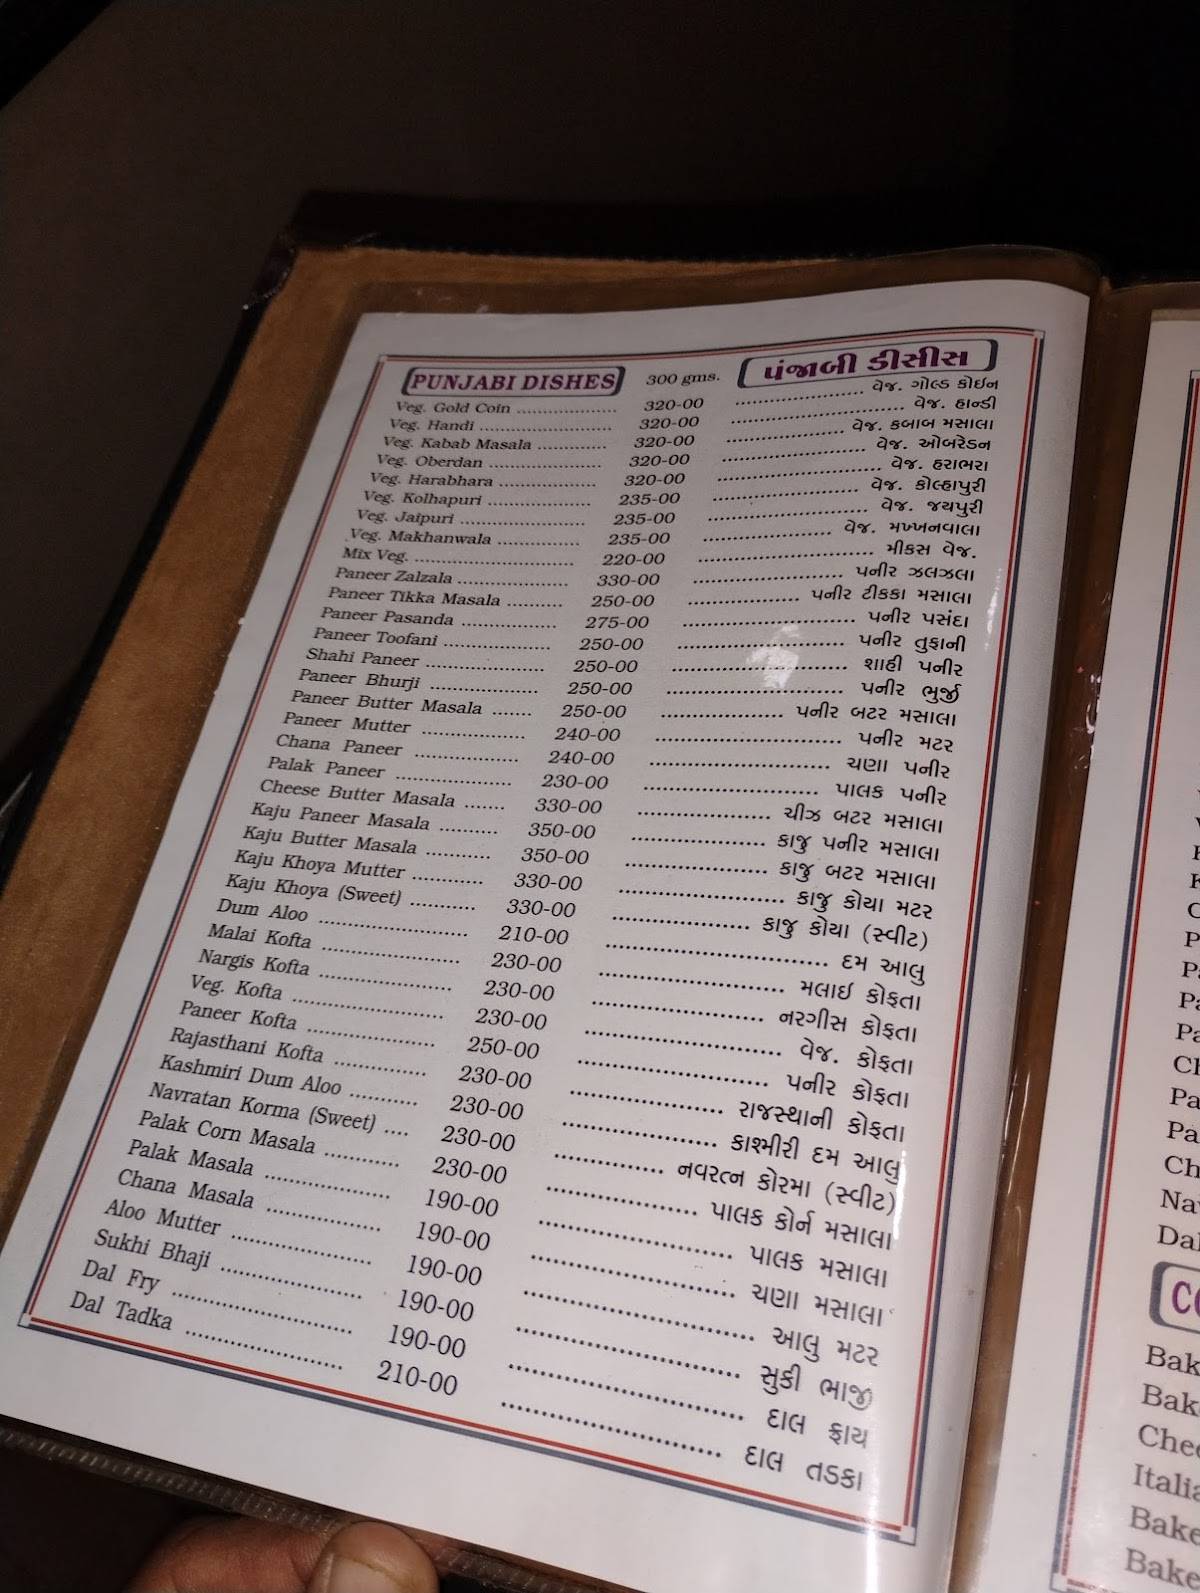 PUNJABI DISHES 300 gms. પંજાબી ડીસીસ
Veg. Gold Coin .................... 320-00 .................... વેજ. ગોલ્ડ કોઇન
Veg. Handi .................... 320-00 .................... વેજ. હાન્ડી
Veg. Kabab Masala ............. 320-00 .................... વેજ. કબાબ મસાલા
Veg. Oberdan .................... 320-00 .................... વેજ. ઓબરેડન
Veg. Harabhara .................... 320-00 .................... વેજ. હરાભરા
Veg. Kolhapuri .................... 235-00 .................... વેજ. કોલ્હાપુરી
Veg. Jaipuri .................... 235-00 .................... વેજ. જયપુરી
Veg. Makhanwala ............... 235-00 .................... વેજ. મખ્ખનવાલા
Mix Veg. .................... 220-00 .................... મીકસ વેજ.
Paneer Zalzala .................... 330-00 .................... પનીર ઝલઝલા
Paneer Tikka Masala .......... 250-00 .................... પનીર ટીકકા મસાલા
Paneer Pasanda .................... 275-00 .................... પનીર પસંદા
Paneer Toofani .................... 250-00 .................... પનીર તુફાની
Shahi Paneer .................... 250-00 .................... શાહી પનીર
Paneer Bhurji .................... 250-00 .................... પનીર ભુર્જી
Paneer Butter Masala ....... 250-00 .................... પનીર બટર મસાલા
Paneer Mutter .................... 240-00 .................... પનીર મટર
Chana Paneer .................... 240-00 .................... ચણા પનીર
Palak Paneer .................... 230-00 .................... પાલક પનીર
Cheese Butter Masala ....... 330-00 .................... ચીઝ બટર મસાલા
Kaju Paneer Masala .......... 350-00 .................... કાજુ પનીર મસાલા
Kaju Butter Masala ........... 350-00 .................... કાજુ બટર મસાલા
Kaju Khoya Mutter ............ 330-00 .................... કાજુ કોયા મટર
Kaju Khoya (Sweet) ........... 330-00 .................... કાજુ કોયા (સ્વીટ)
Dum Aloo .................... 210-00 .................... દમ આલુ
Malai Kofta .................... 230-00 .................... મલાઇ કોફતા
Nargis Kofta .................... 230-00 .................... નરગીસ કોફતા
Veg. Kofta .................... 230-00 .................... વેજ. કોફતા
Paneer Kofta .................... 250-00 .................... પનીર કોફતા
Rajasthani Kofta ............... 230-00 .................... રાજસ્થાની કોફતા
Kashmiri Dum Aloo ............ 230-00 .................... કાશ્મીરી દમ આલુ
Navratan Korma (Sweet) .... 230-00 .................... નવરત્ન કોરમા (સ્વીટ)
Palak Corn Masala ............ 230-00 .................... પાલક કોર્ન મસાલા
Palak Masala .................... 190-00 .................... પાલક મસાલા
Chana Masala .................... 190-00 .................... ચણા મસાલા
Aloo Mutter .................... 190-00 .................... આલુ મટર
Sukhi Bhaji .................... 190-00 .................... સુકી ભાજી
Dal Fry .................... 190-00 .................... દાલ ફ્રાય
Dal Tadka .................... 210-00 .................... દાલ તડકા